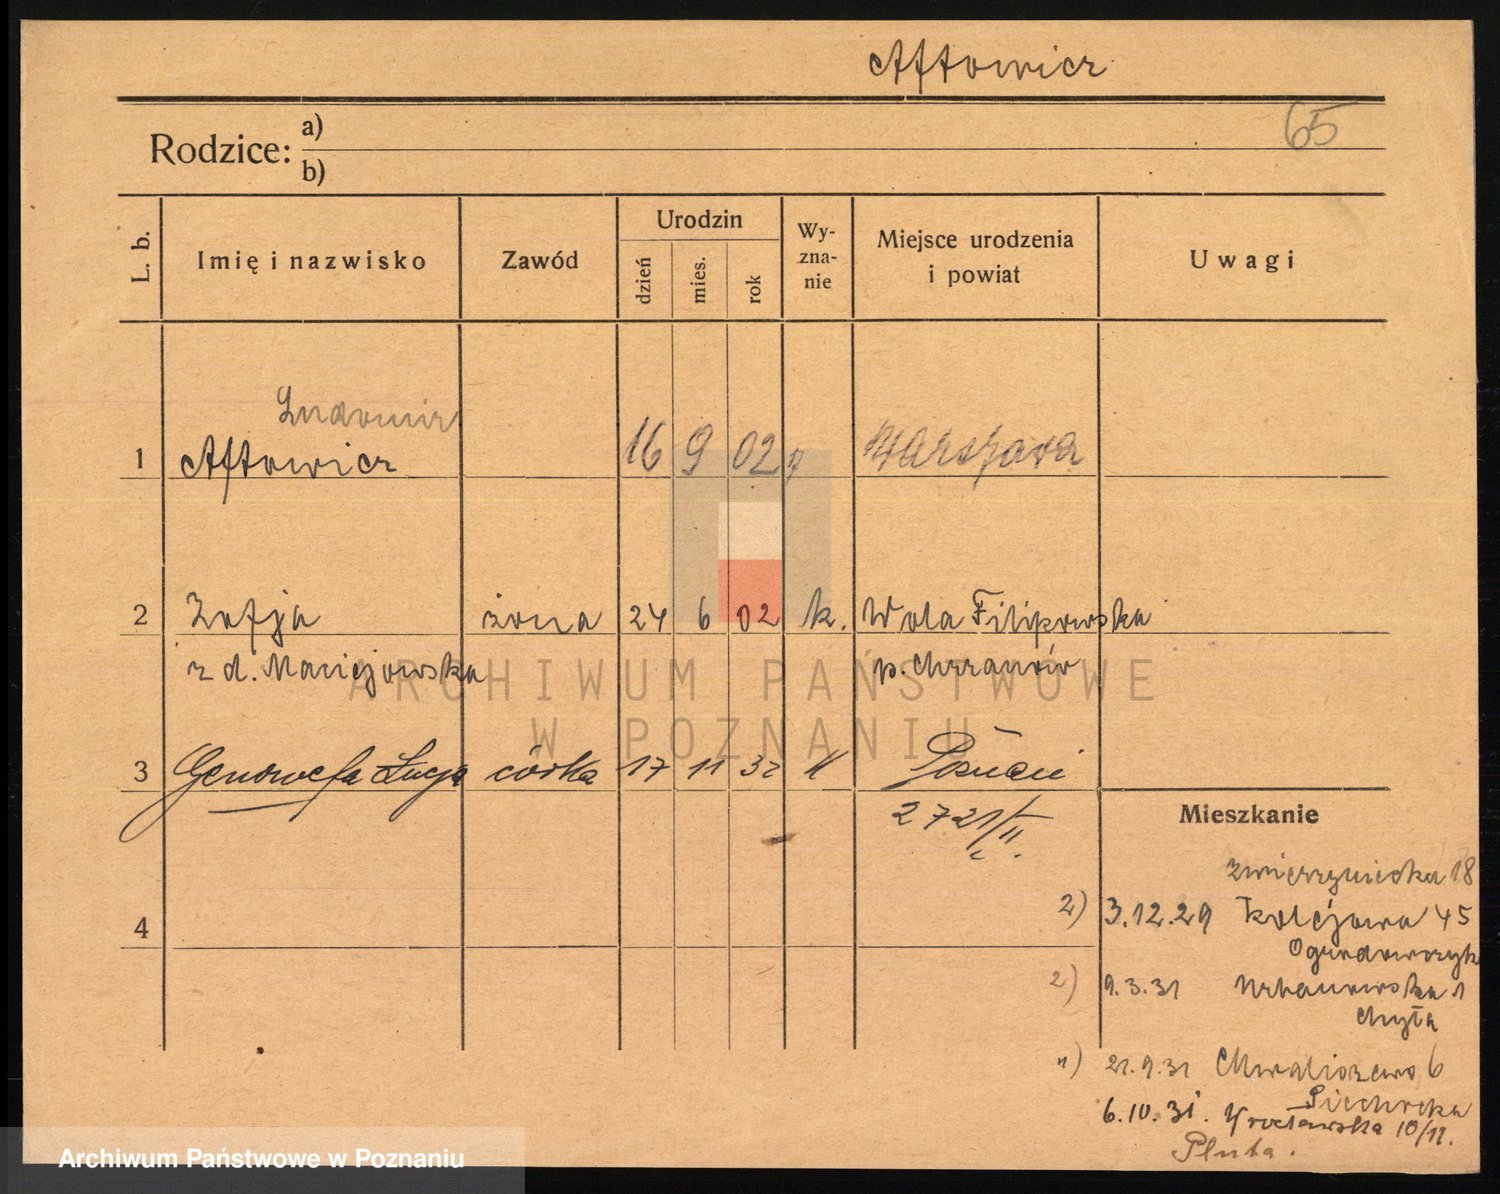 Aftowicz
65
Rodzice: a)
b)
L. b.
Imię i nazwisko
Zawód
Urodzin
dzień
mies.
rok
Wy-
zna-
nie
Miejsce urodzenia
i powiat
Uwagi
Ludomir
1 Aftowicz 16 9 02 Warszawa
2 Zofja żona 24 6 02 k. Wola Filipowska
z d. Maciejowska p. Chrzanów
3 Genowefa Łucja córka 17 11 32 k Poznań
2721/II.
4
Mieszkanie
Zwierzyniecka 18
2) 3.12.29 Kolejowa 45
Ogrodowczyk
2) 9.3.31 Urbanowska 1
Chyła
21.9.31 Chwaliszewo 6
Piechocka
6.10.31. Wrocławska 10/11.
Pluta.
ARCHIWUM PAŃSTWOWE
W POZNANIU
Archiwum Państwowe w Poznaniu